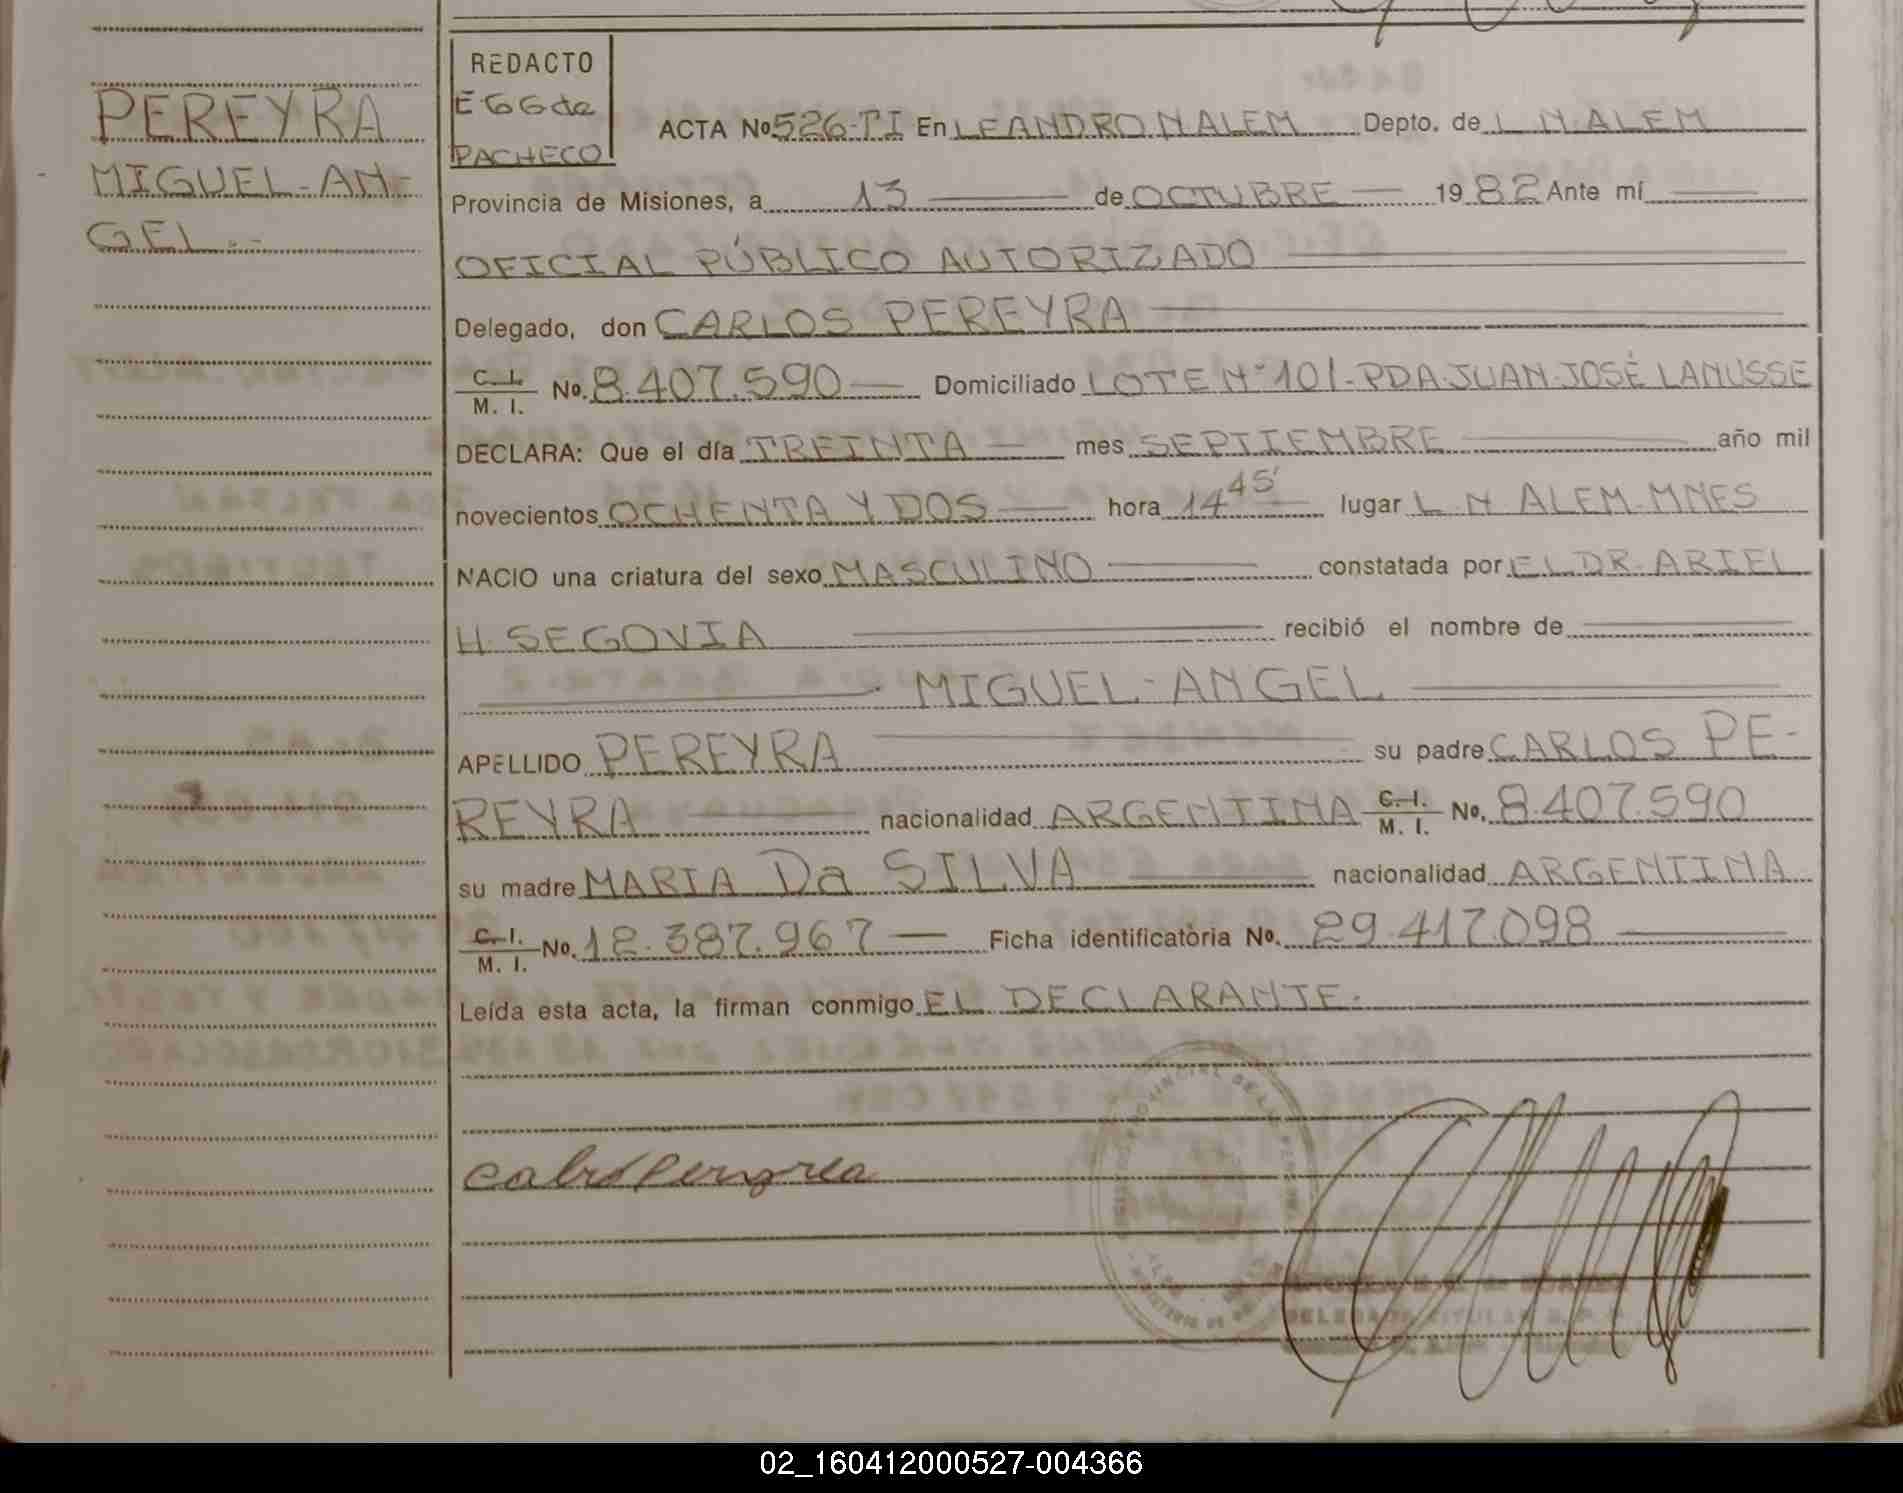 PEREYRA
MIGUEL-AN-
GEL.-
REDACTO
EGGde
PACHECO
ACTA No 526-TI En LEANDRO N ALEM Depto. de L N. ALEM
Provincia de Misiones, a 13 de OCTUBRE 1982 Ante mí
OFICIAL PÚBLICO AUTORIZADO
Delegado, don CARLOS PEREYRA
C. I. / M. I. No. 8.407.590 Domiciliado LOTE Nº 101-PDA.JUAN JOSÉ LANUSSE
DECLARA: Que el día TREINTA mes SEPTIEMBRE año mil
novecientos OCHENTA Y DOS hora 14 45' lugar L N ALEM-MNES
NACIO una criatura del sexo MASCULINO constatada por EL DR. ARIEL
H. SEGOVIA recibió el nombre de
MIGUEL-ANGEL
APELLIDO PEREYRA su padre CARLOS PE-
REYRA nacionalidad ARGENTINA C. I. / M. I. No. 8.407.590
su madre MARIA Da SILVA nacionalidad ARGENTINA
C. I. / M. I. No. 12.387.967 Ficha identificatoria No. 29.417.098
Leída esta acta, la firman conmigo EL DECLARANTE.
02_160412000527-004366